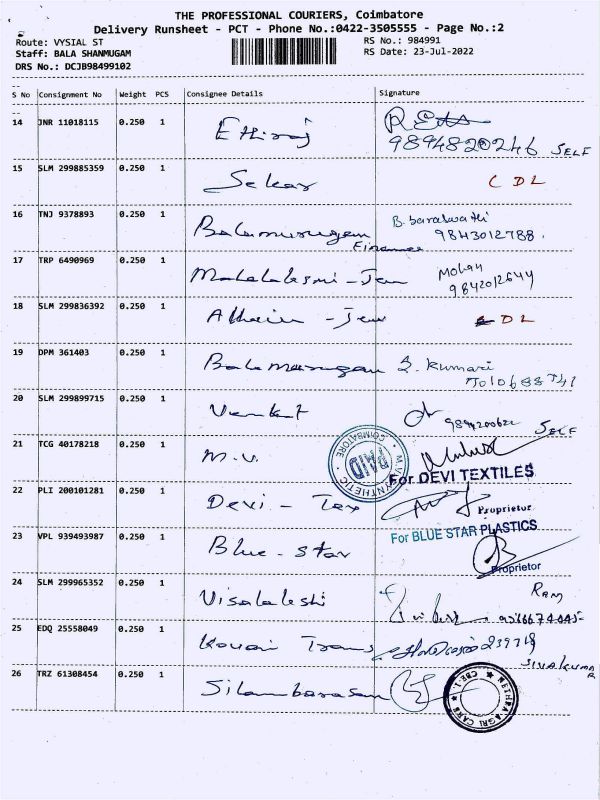 THE PROFESSIONAL COURIERS, Coimbatore
Delivery Runsheet - PCT - Phone No.:0422-3505555 - Page No.:2
Route: VYSIAL ST
RS No.: 984991
Staff: BALA SHANMUGAM
RS Date: 23-Jul-2022
DRS No.: DCJB98499102
S No Consignment No Weight PCS Consignee Details Signature
14 JNR 11018115 0.250 1 Ethiraj
9894820246 SELF
15 SLM 299885359 0.250 1 Sekar CDL
16 TNJ 9378893 0.250 1 Balamurugan Finance B. Saraswathi
9843012788.
17 TRP 6490969 0.250 1 Mahalaksmi - Jew Mohan
9842012644
18 SLM 299836392 0.250 1 - Jew DL
19 DPM 361403 0.250 1 Balamurugan S. Kumari
20 SLM 299899715 0.250 1 Venkat SELF
21 TCG 40178218 0.250 1 M.V.
COIMBATORE
For DEVI TEXTILES
22 PLI 200101281 0.250 1 Devi - Tex
Proprietor
23 VPL 939493987 0.250 1 Blue - Star
For BLUE STAR PLASTICS
Proprietor
24 SLM 299965352 0.250 1 Visalakshi RAM
25 EDQ 25558049 0.250 1 Kovai Trans
SIVAKUMAR
26 TRZ 61308454 0.250 1 Silambarasan
NETHRA AGRI CARE
CBE-1.